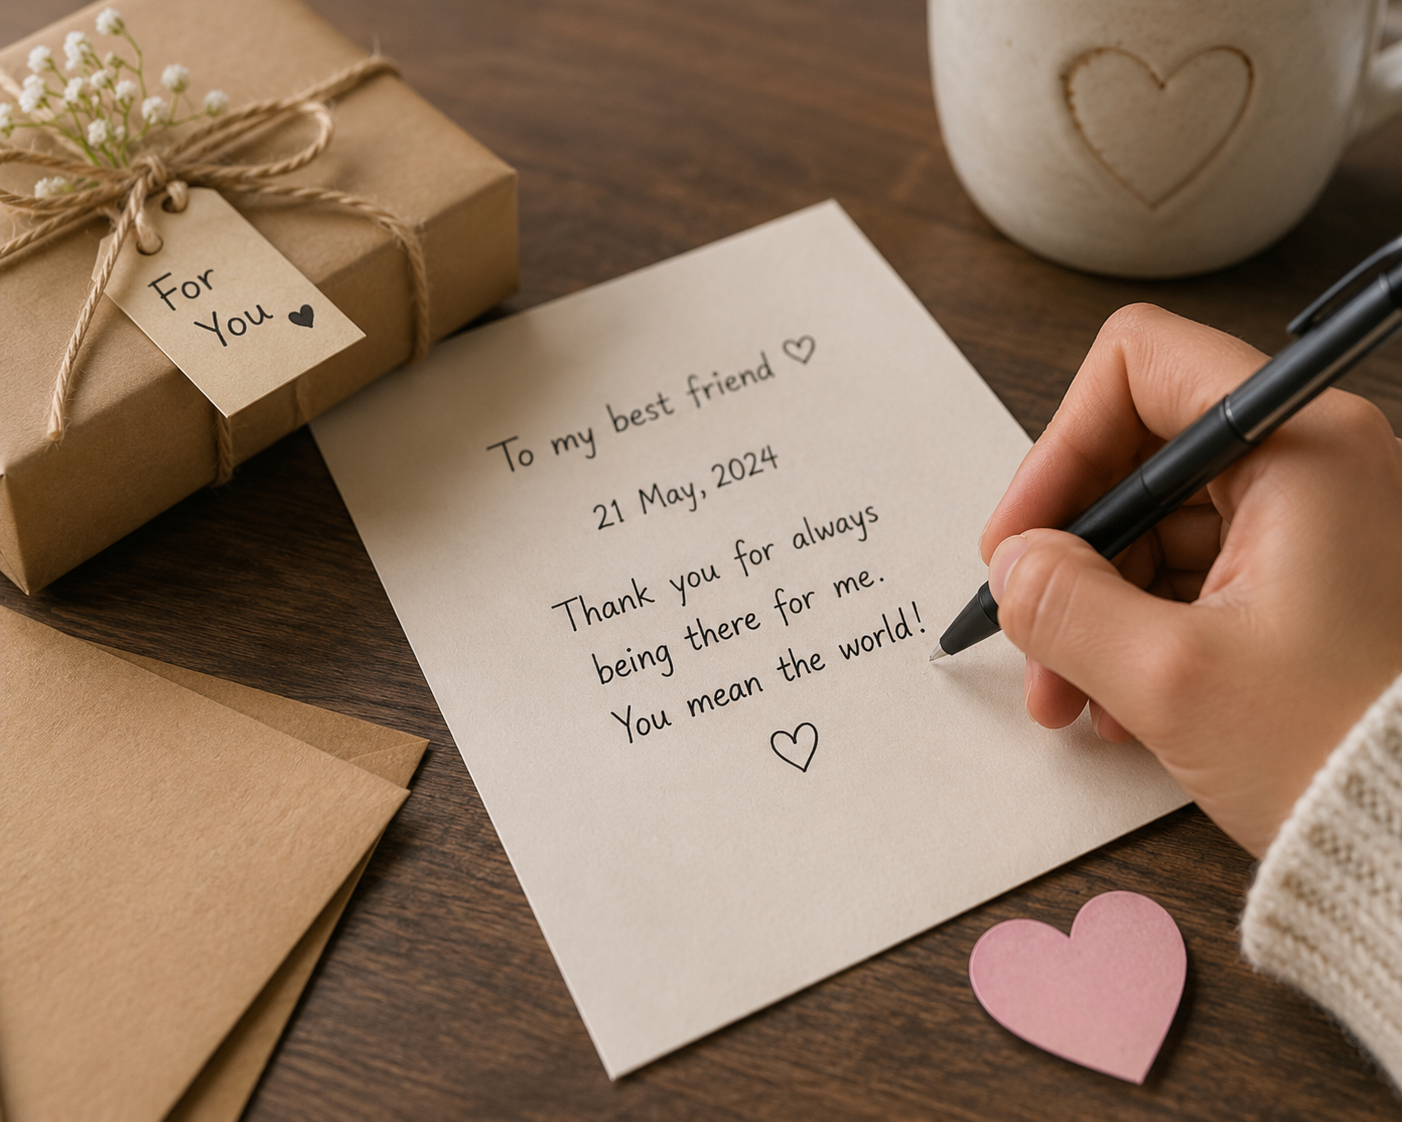 For
You ♥
To my best friend ♡
21 May, 2024
Thank you for always
being there for me.
You mean the world!
♡